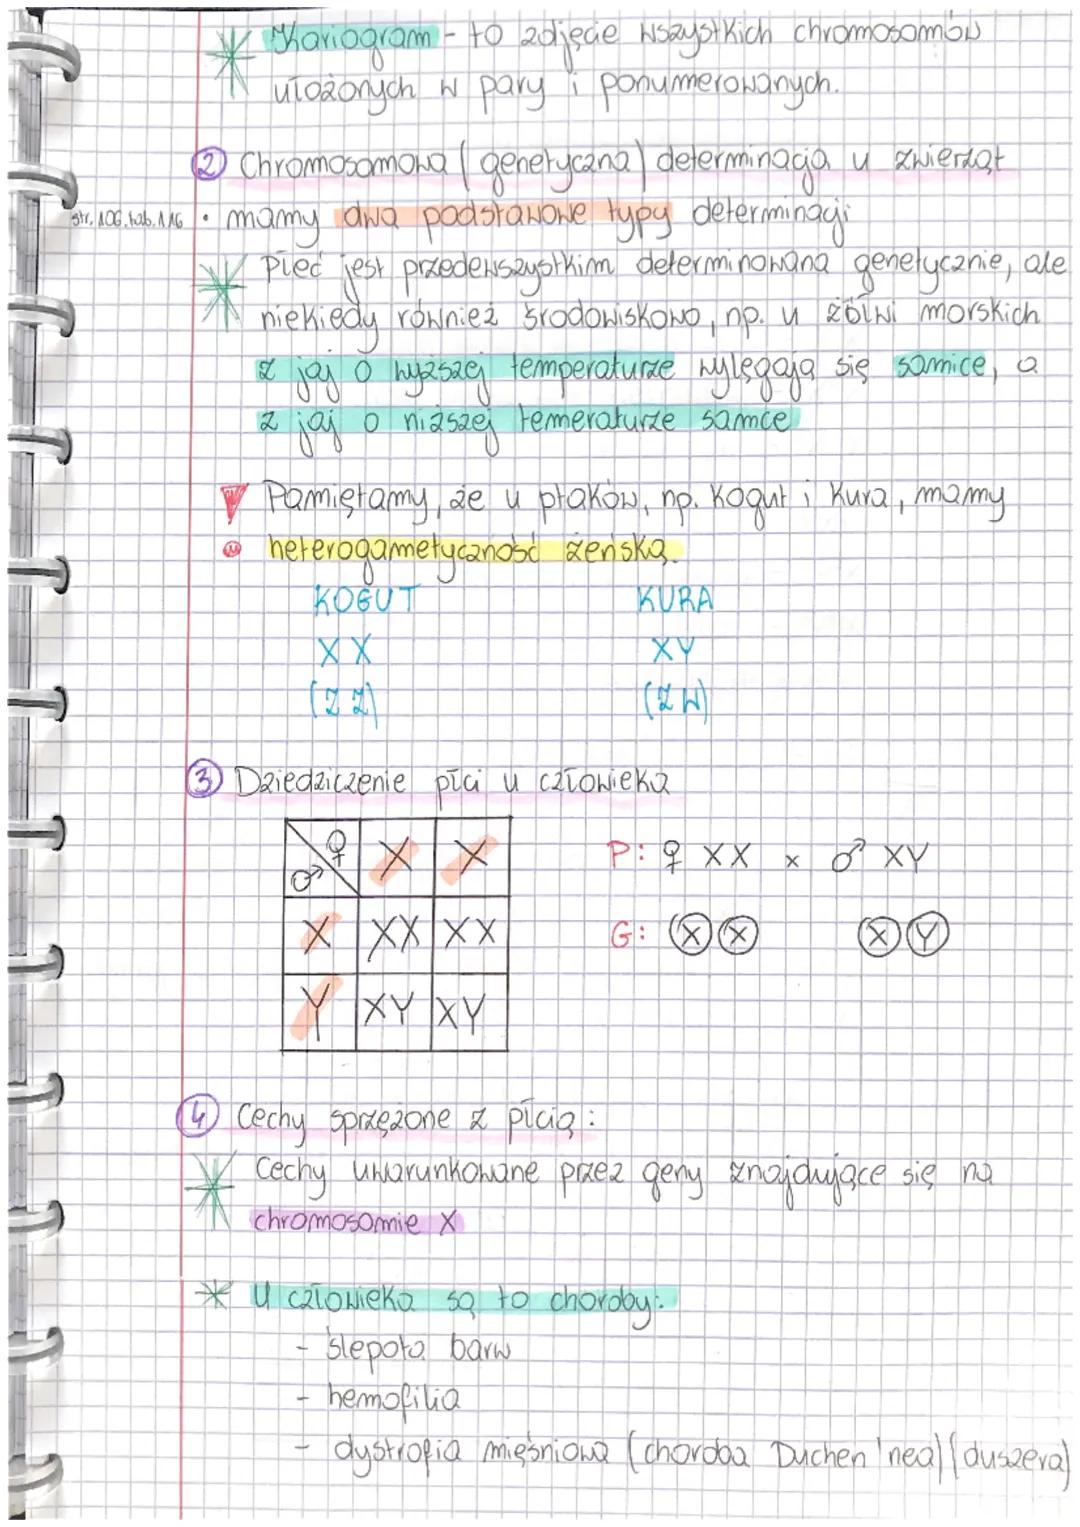 Kariogram - to zdjęcie wszystkich chromosomów
ułożonych w pary i ponumerowanych.
2 Chromosomowa (genetyczna) determinacja u zwierząt
str. 106, tab. 1.16 • mamy dwa podstawowe typy determinacji
Płeć jest przedewszystkim determinowana genetycznie, ale
niekiedy również środowiskowo, np. u żółwi morskich
z jaj o wyższej temperaturze wylęgają się samice, a
z jaj o niższej temeraturze samce
Pamiętamy, że u ptaków, np. Kogut i Kura, mamy
heterogametyczność żeńską.
KOGUT KURA
XX XY
(ZZ) (ZW)
3 Dziedziczenie płci u człowieka
♀ ♂ X X
X XX XX
Y XY XY
P: ♀ XX x ♂ XY
G: X X X Y
4 Cechy sprzężone z płcią:
Cechy uwarunkowane przez geny znajdujące się na
chromosomie X
* U człowieka są to choroby:
- ślepota barw
- hemofilia
- dystrofia mięśniowa (choroba Duchen'nea) (duszera)